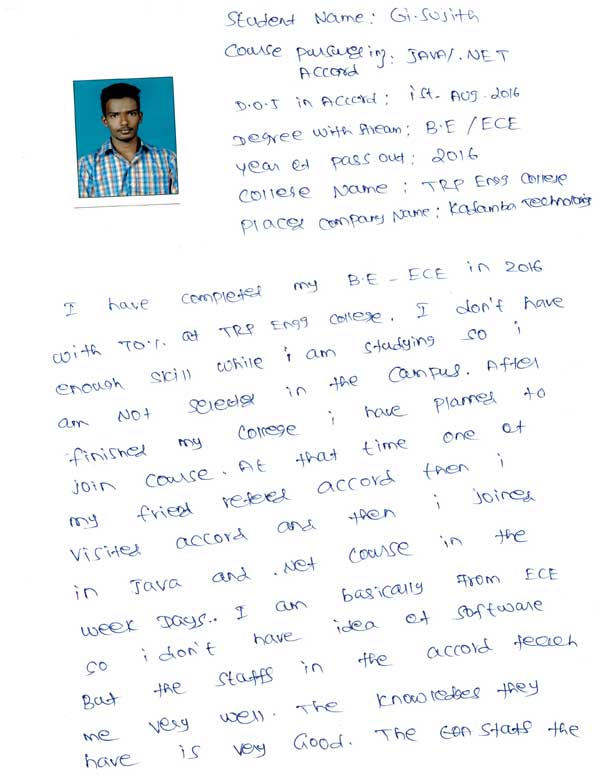 Student Name: G.Sujith
Course pursueing: JAVA/.NET
Accord
D.O.J in Accord: 1st- Aug-2016
Degree with Aream: B.E /ECE
year of pass out: 2016
College Name: TRP Engg College
Placed company Name: Kadamba Technologies
I have completed my B.E - ECE in 2016
with 70% at TRP Engg college. I don't have
enough skill while i am studying so i
am Not selected in the campus. After
finished my college i have planned to
join course. At that time one of
my fried refered accord then i
visited accord and then i joined
in Java and .Net course in the
week Days.. I am basically from ECE
so i don't have idea of software
But the staffs in the accord teach
me very well. The knowledges they
have is very Good. The staffs the